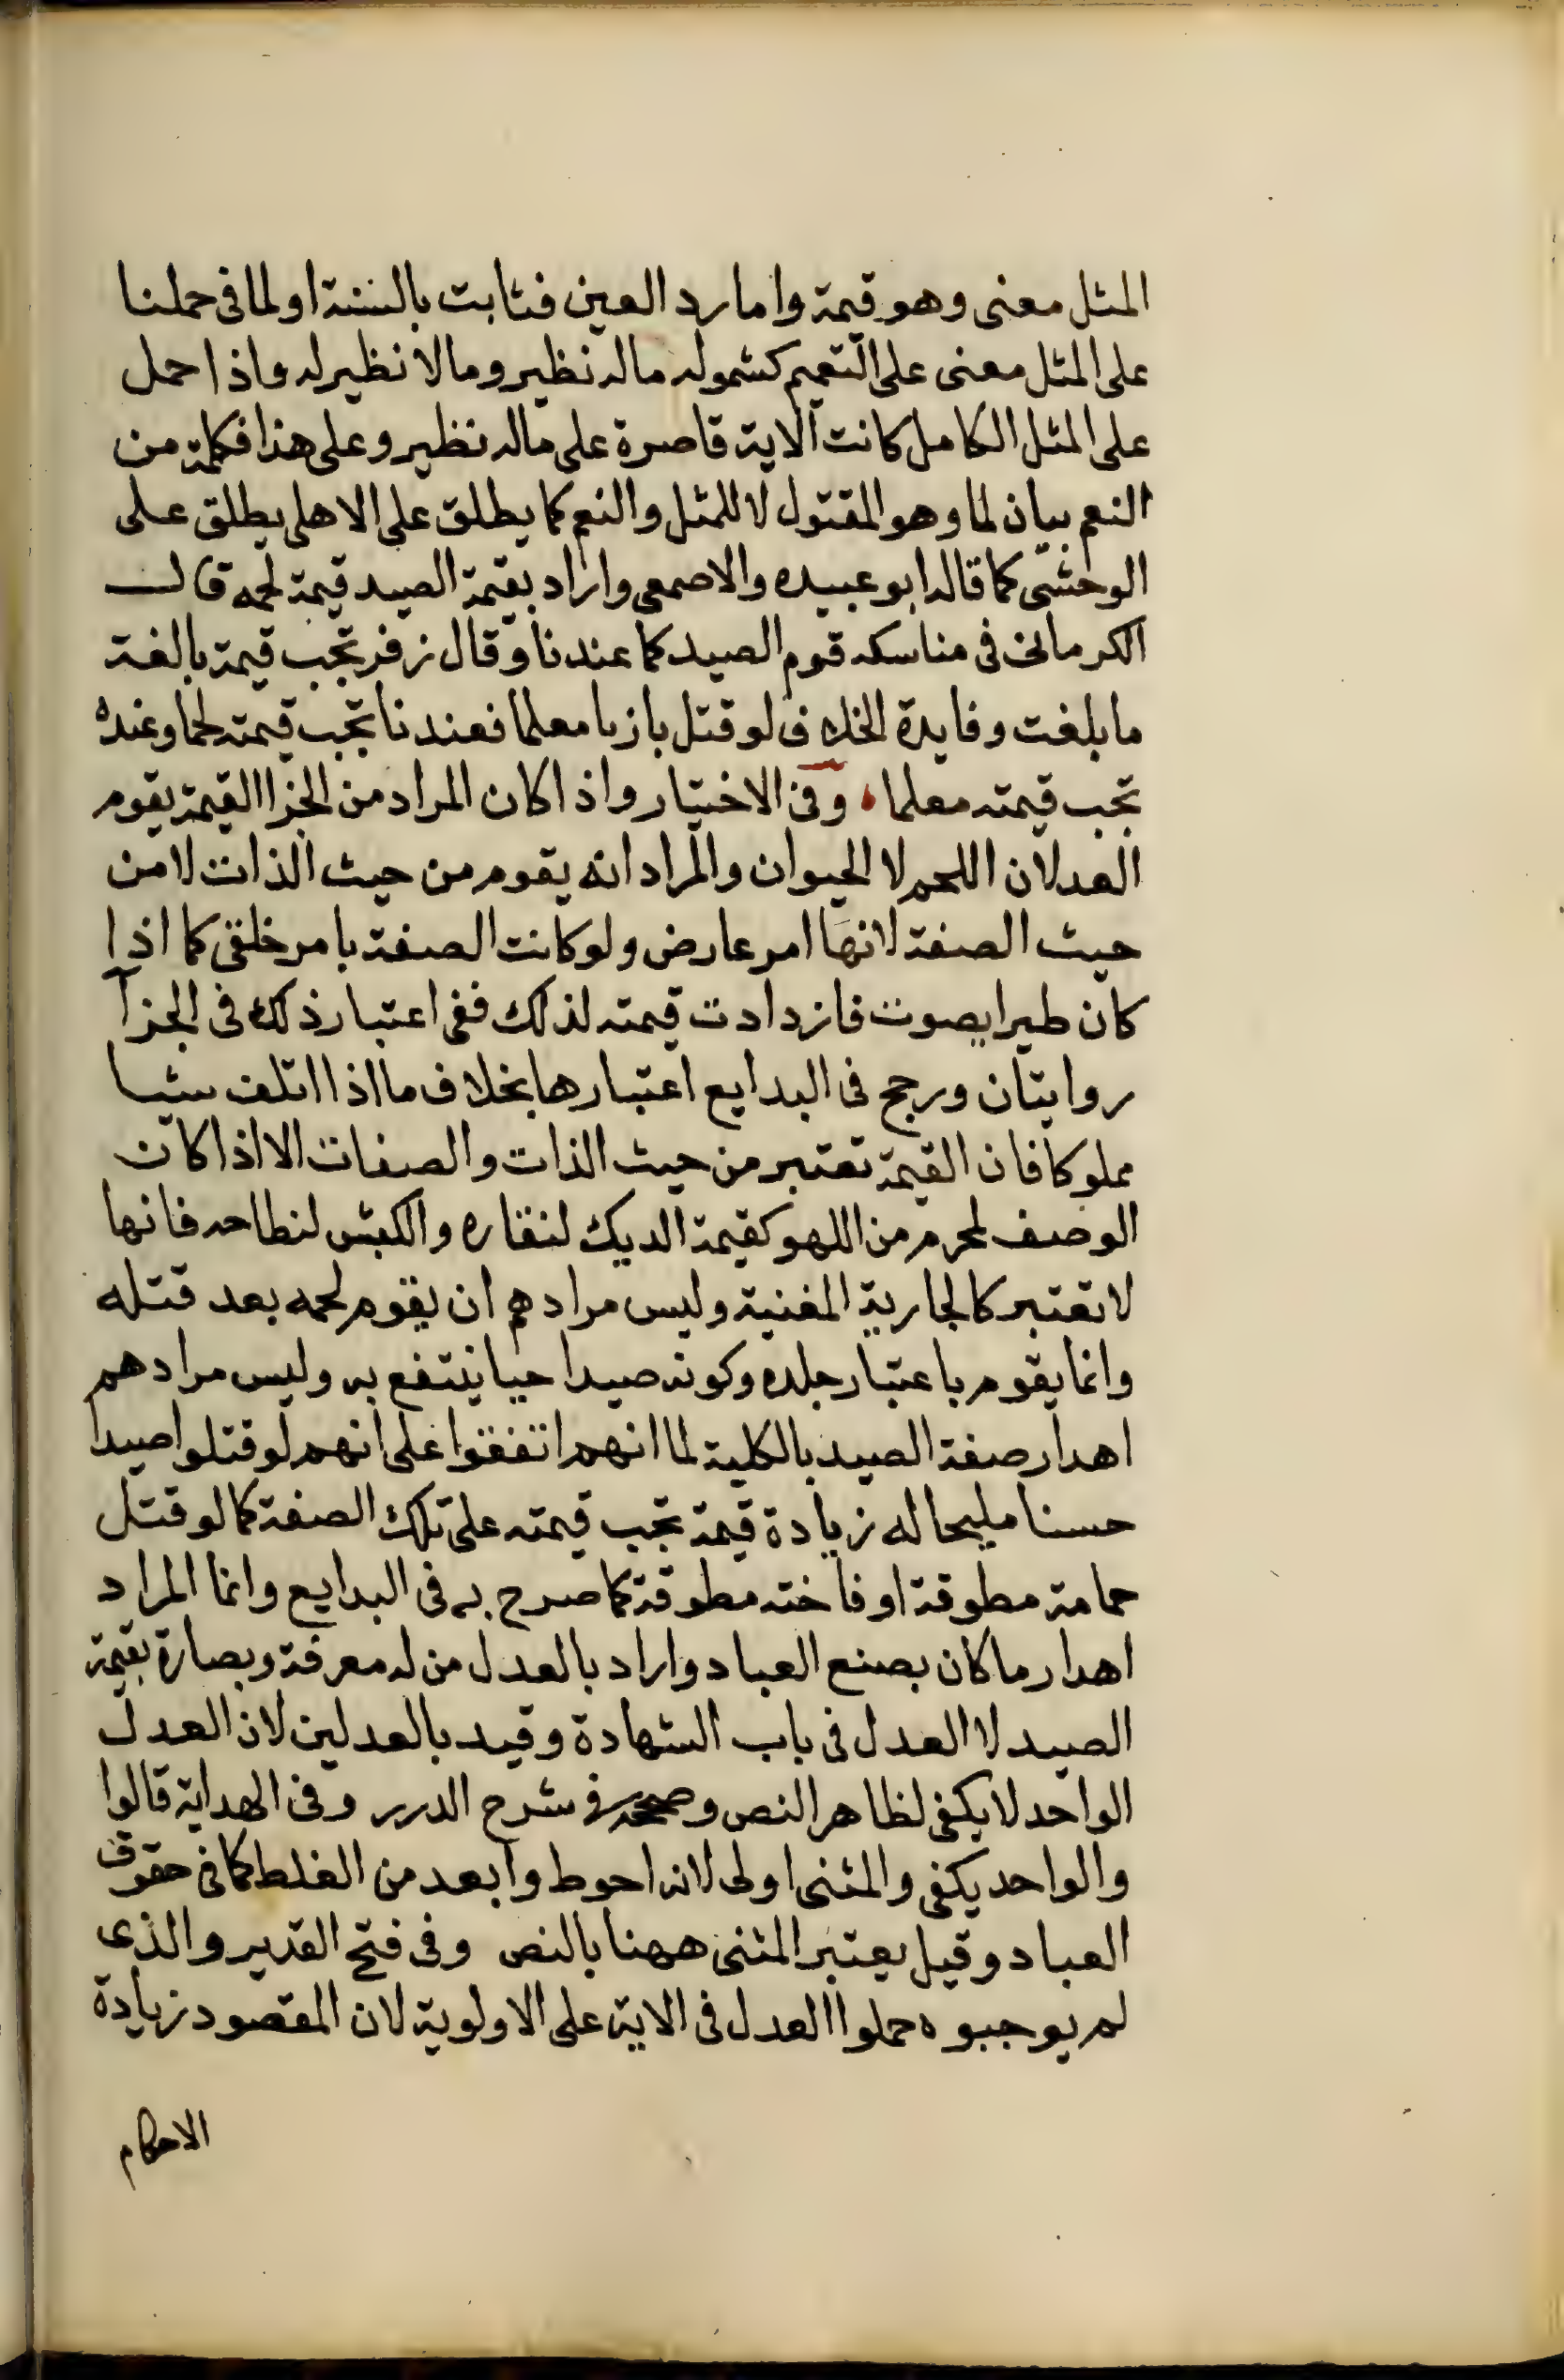 المثل معنى وهو قيمة واما رد العين فثابت بالسنة او لما فى حملنا
على المثل معنى على التعميم كشموله ماله نظير ومالا نظير له واذا حمل
على المثل الكامل كانت الاية قاصرة على ماله نظير وعلى هذا فكلمة من
النعم بيان لما وهو المقتول لا للمثل والنعم كما يطلق على الاهلى يطلق على
الوحشى كما قاله ابو عبيده والاصمعى واراد بقيمة الصيد قيمة لحمه قال
الكرمانى فى مناسكه قوم الصيد كما عندنا وقال زفر تجب قيمة بالغة
ما بلغت وفايدة الخلاف لو قتل بازيا معلما فعندنا تجب قيمته لحما وعنده
تجب قيمته معلما، وفى الاختيار واذا كان المراد من الجزا القيمة يقوم
العدلان اللحم لا الحيوان والمراد انه يقوم من حيث الذات لا من
حيث الصفة لانها امر عارض ولو كانت الصفة بامر خلقى كما اذا
كان طيرا يصوت فازدادت قيمته لذلك ففى اعتبار ذلك فى الجزآ
روايتان ورجح فى البدايع اعتبارها بخلاف ما اذا اتلف شيا
مملوكا فان القيمة تعتبر من حيث الذات والصفات الا اذا كان
الوصف لمحرم من اللهو كقيمة الديك لنقاره والكبش لنطاحه فانها
لا تعتبر كالجارية المغنية وليس مرادهم ان يقوم لحمه بعد قتله
وانما يقوم باعتبار جلده وكونه صيدا حيا ينتفع به وليس مرادهم
اهدار صفة الصيد بالكلية لما انهم اتفقوا على انهم لو قتلوا صيدا
حسنا مليحا له زيادة قيمة تجب قيمته على تلك الصفة كما لو قتل
حمامة مطوقة او فاخته مطوقة كما صرح به فى البدايع وانما المراد
اهدار ما كان بصنع العباد واراد بالعدل من له معرفة وبصارة بقيمة
الصيد لا العدل فى باب الشهادة وقيد بالعدلين لان العدل
الواحد لا يكفى لظاهر النص وصححه فى شرح الدرر وفى الهداية قالوا
والواحد يكفى والمثنى اولى لانه احوط وابعد من الغلط كما فى حقوق
العباد وقيل يعتبر المثنى ههنا بالنص وفى فتح القدير والذى
لم يوجبوه حملوا العدل فى الاية على الاولوية لان المقصود زيادة
الاحكام